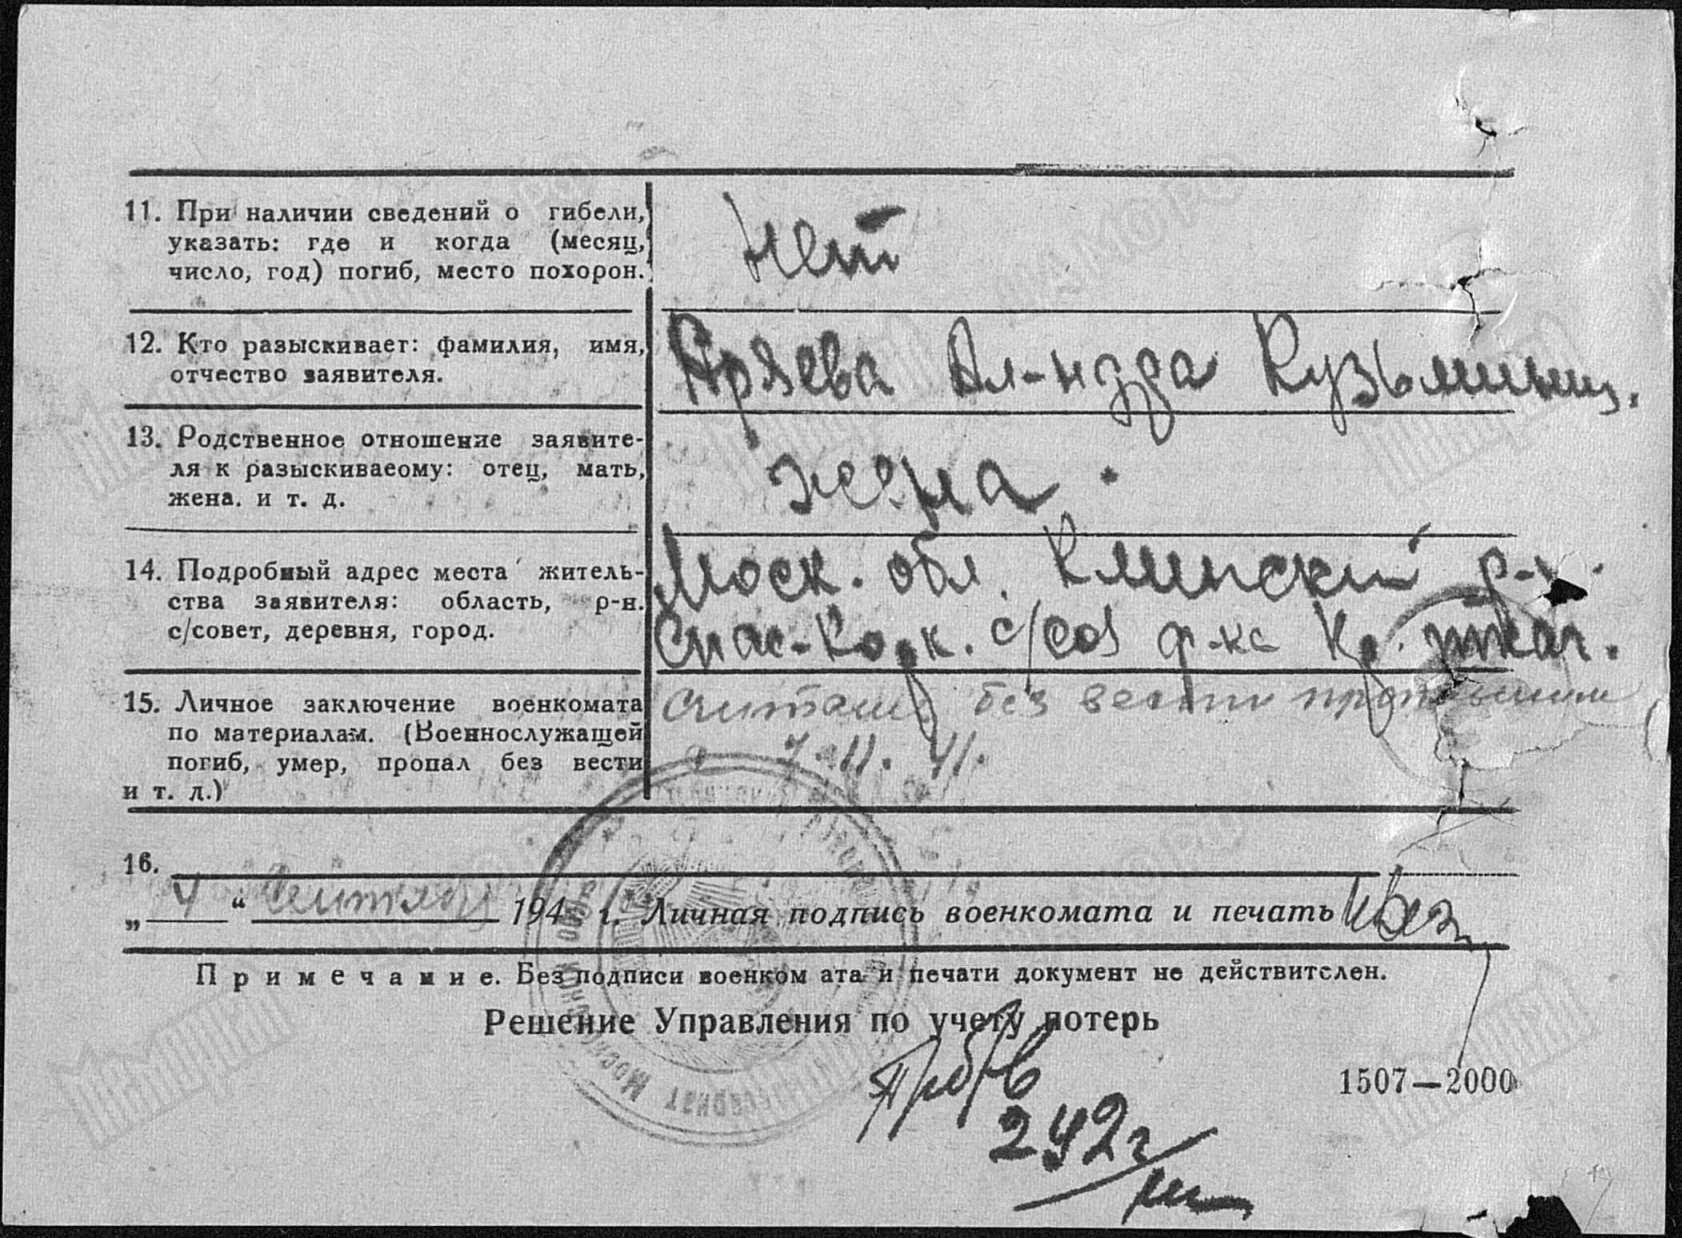 11. При наличии сведений о гибели,
указать: где и когда (месяц,
число, год) погиб, место похорон.
нет
12. Кто разыскивает: фамилия, имя,
отчество заявителя.
Ал-ндра Кузьминич.
13. Родственное отношение заявите-
ля к разыскиваеому: отец, мать,
жена. и т. д.
жена.
14. Подробный адрес места житель-
ства заявителя: область, р-н.
с/совет, деревня, город.
Моск. обл. Клинский р-н.
Спас-Корк. с/сов ф-ка Кр. ткач.
15. Личное заключение военкомата
по материалам. (Военнослужащей
погиб, умер, пропал без вести
и т. д.)
Считать без вести пропавшим
11. 41.
16.
„4“ Сентября 194 г. Личная подпись военкомата и печать
Примечание. Без подписи военком ата и печати документ не действителен.
Решение Управления по учету потерь
1507—2000